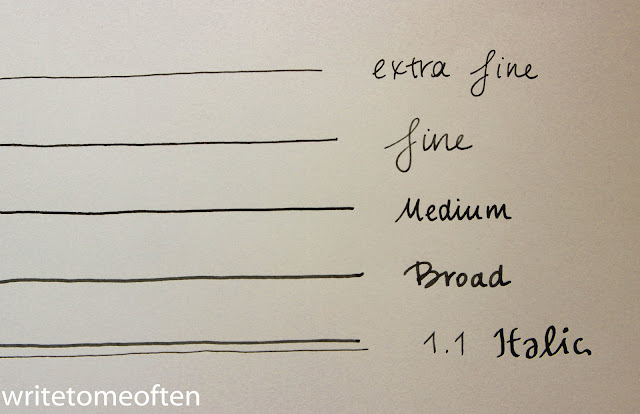 extra fine
fine
Medium
Broad
1.1 Italic
writetomeoften